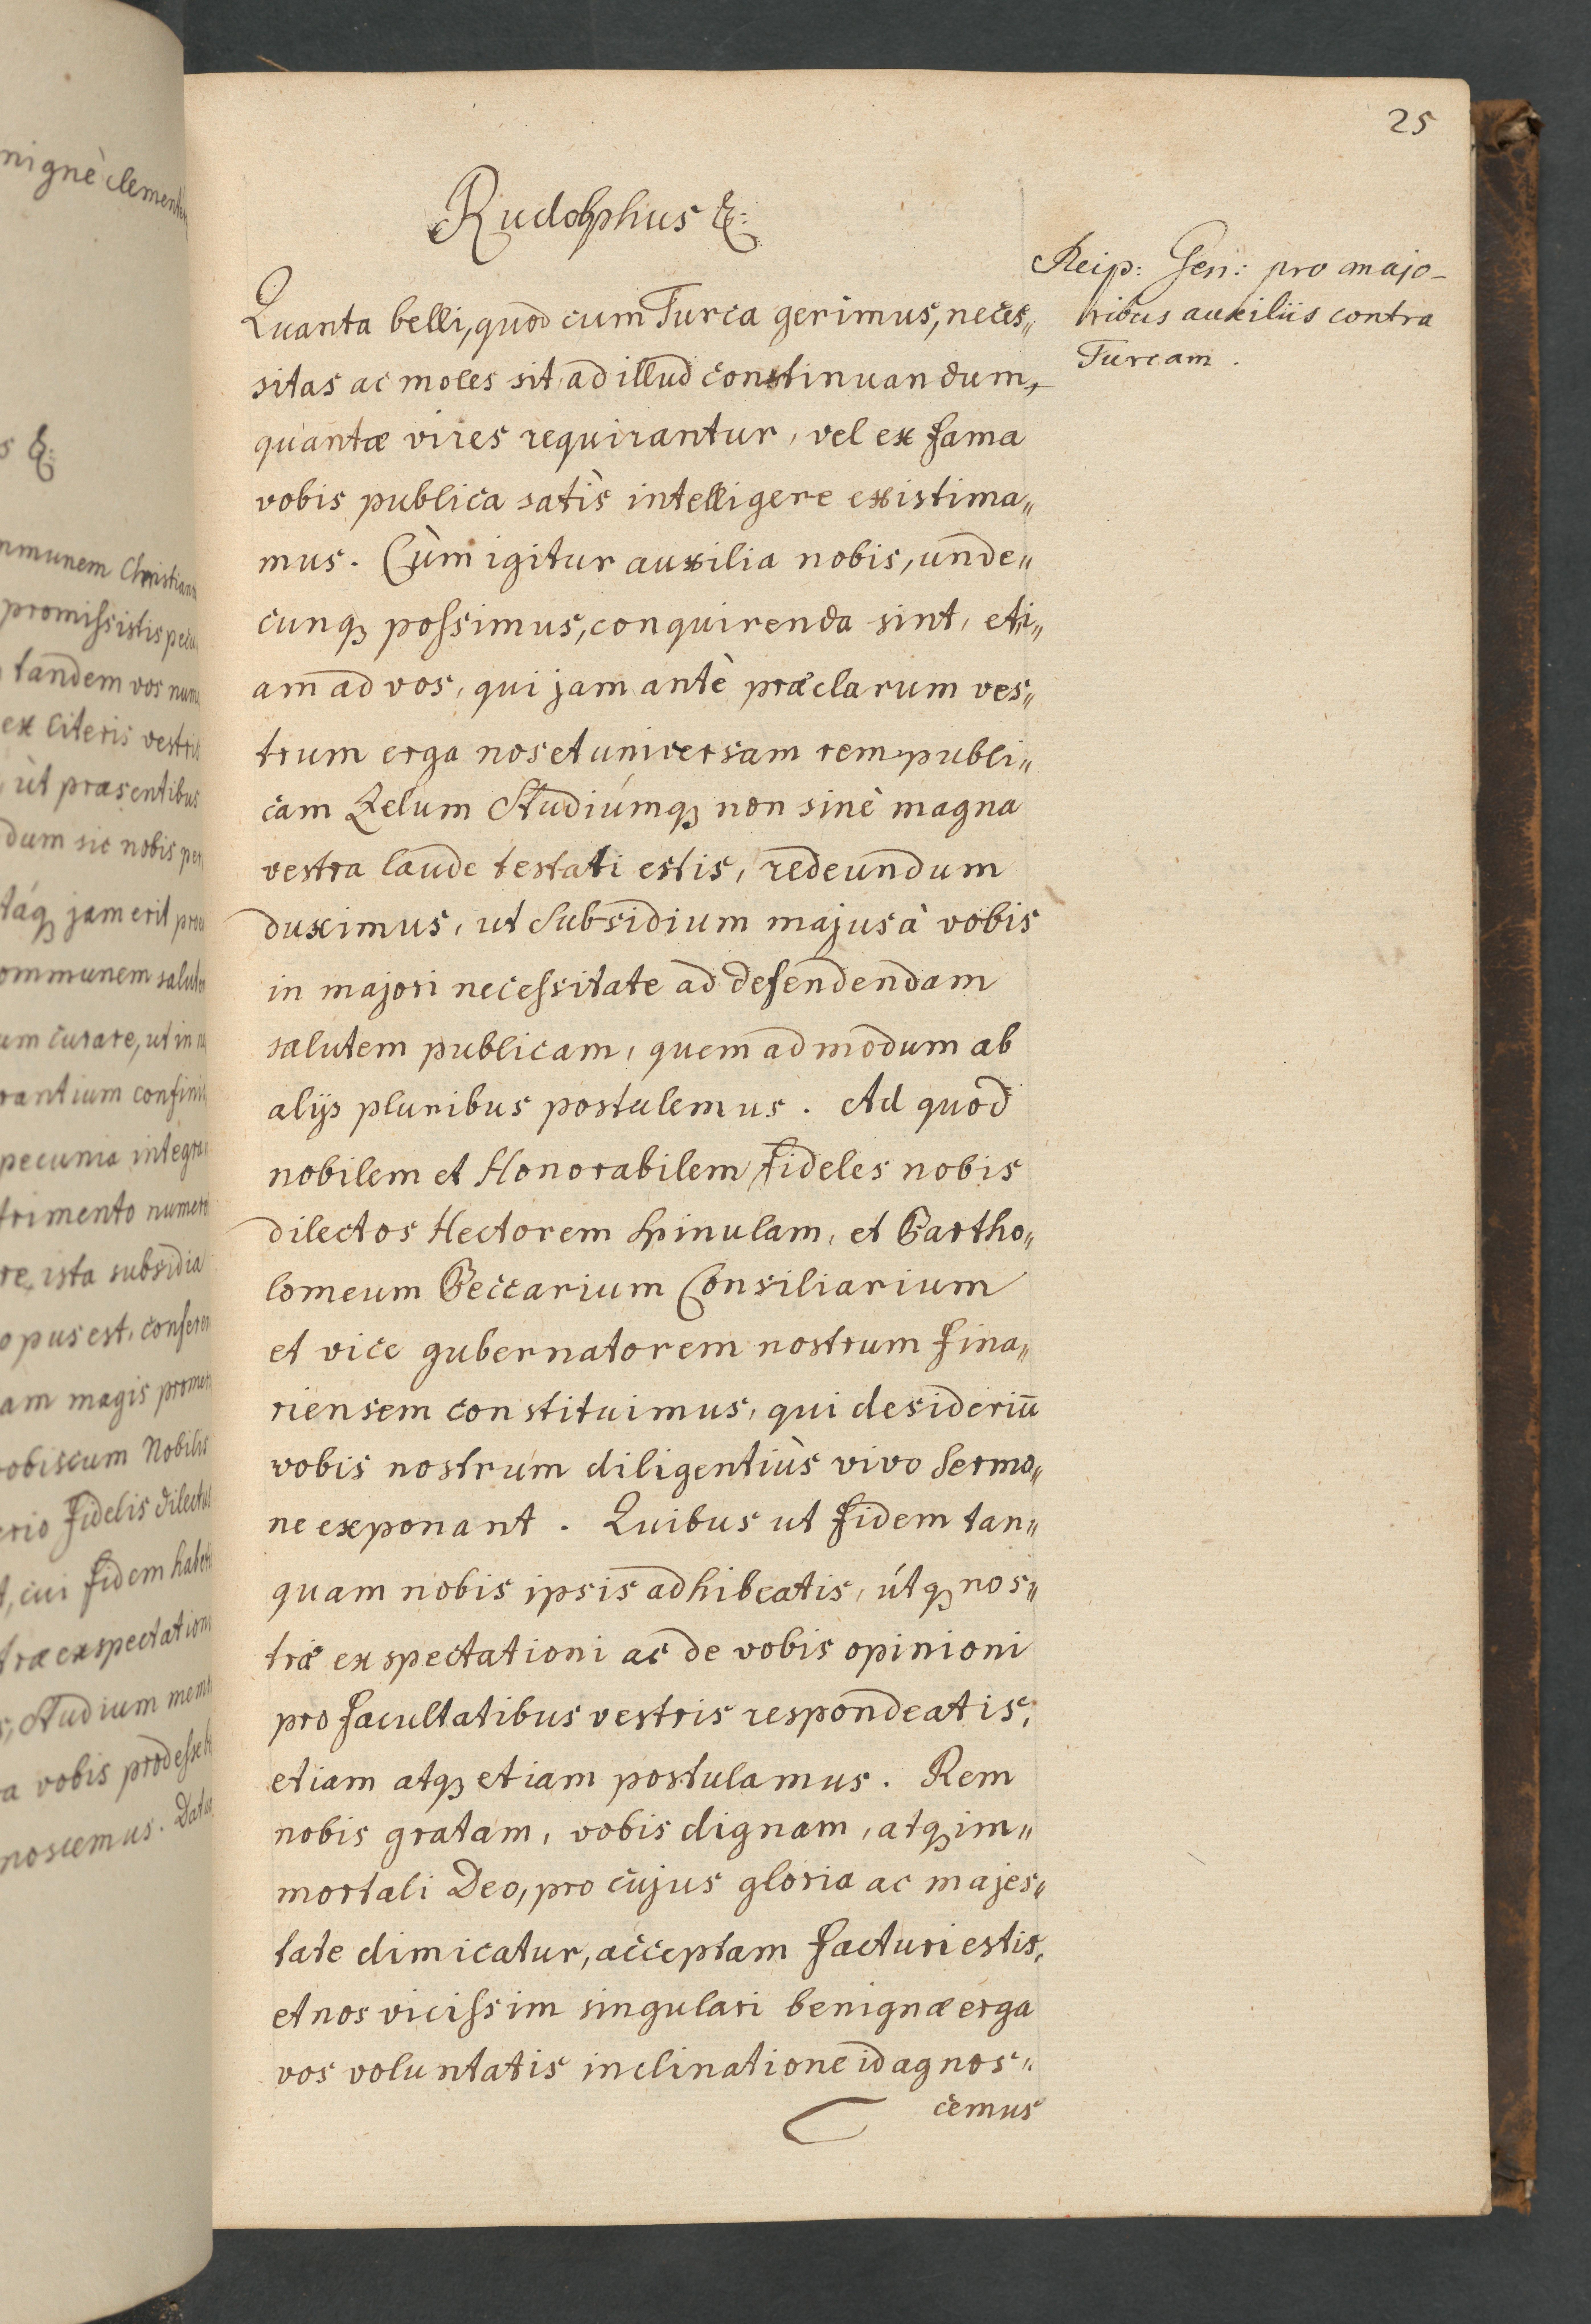 25
Rudolphus &:
Reip: Gen: pro majo-
ribus auxiliis contra
Turcam.
Quanta belli, quod cum Turca gerimus, neces„
sitas ac moles sit, ad illud continuandum,
quantæ vires requirantur, vel ex fama
vobis publica satis intelligere existima„
mus. Cùm igitur auxilia nobis, unde„
cunq; possimus, conquirenda sint, eti„
am ad vos, qui jam antè præclarum ves„
trum erga nos et universam rempubli„
cam Zelum Studiúmq; non sinè magna
vestra laude testati estis, redeundum
duximus, ut Subsidium majus à vobis
in majori necessitate ad defendendam
salutem publicam, quem ad modum ab
alijs pluribus postulemus. Ad quod
nobilem et Honorabilem fideles nobis
dilectos Hectorem Spinulam, et Bartho„
lomeum Beccarium Consiliarium
et vice gubernatorem nostrum fina„
riensem constituimus, qui desideriū
vobis nostrum diligentiùs vivo Sermo„
ne exponant. Quibus ut fidem tan„
quam nobis ipsis adhibeatis, útq; nos„
træ exspectationi ac de vobis opinioni
pro facultatibus vestris respondeatis,
etiam atq; etiam postulamus. Rem
nobis gratam, vobis dignam, atq; im„
mortali Deo, pro cujus gloria ac majes„
tate dimicatur, acceptam facturi estis,
et nos vicissim singulari benignæ erga
vos voluntatis inclinatione id agnos„
cemus
nignè clementer
s &:
mmunem Christian
promissistis pecu
tandem vos num
ex literis vestris
ùt præsentibus
dum sic nobis per
táq; jam erit pro
ommunem salute
um curare, ut in
rantium confini
pecunia integra
trimento numer
re, ista subsidia
opus est, confere
am magis prome
vobiscum Nobilis
erio fidelis dilectus
t, cui fidem habe
træ exspectation
s, Studium mem
a vobis prodesse
noscemus. Datum